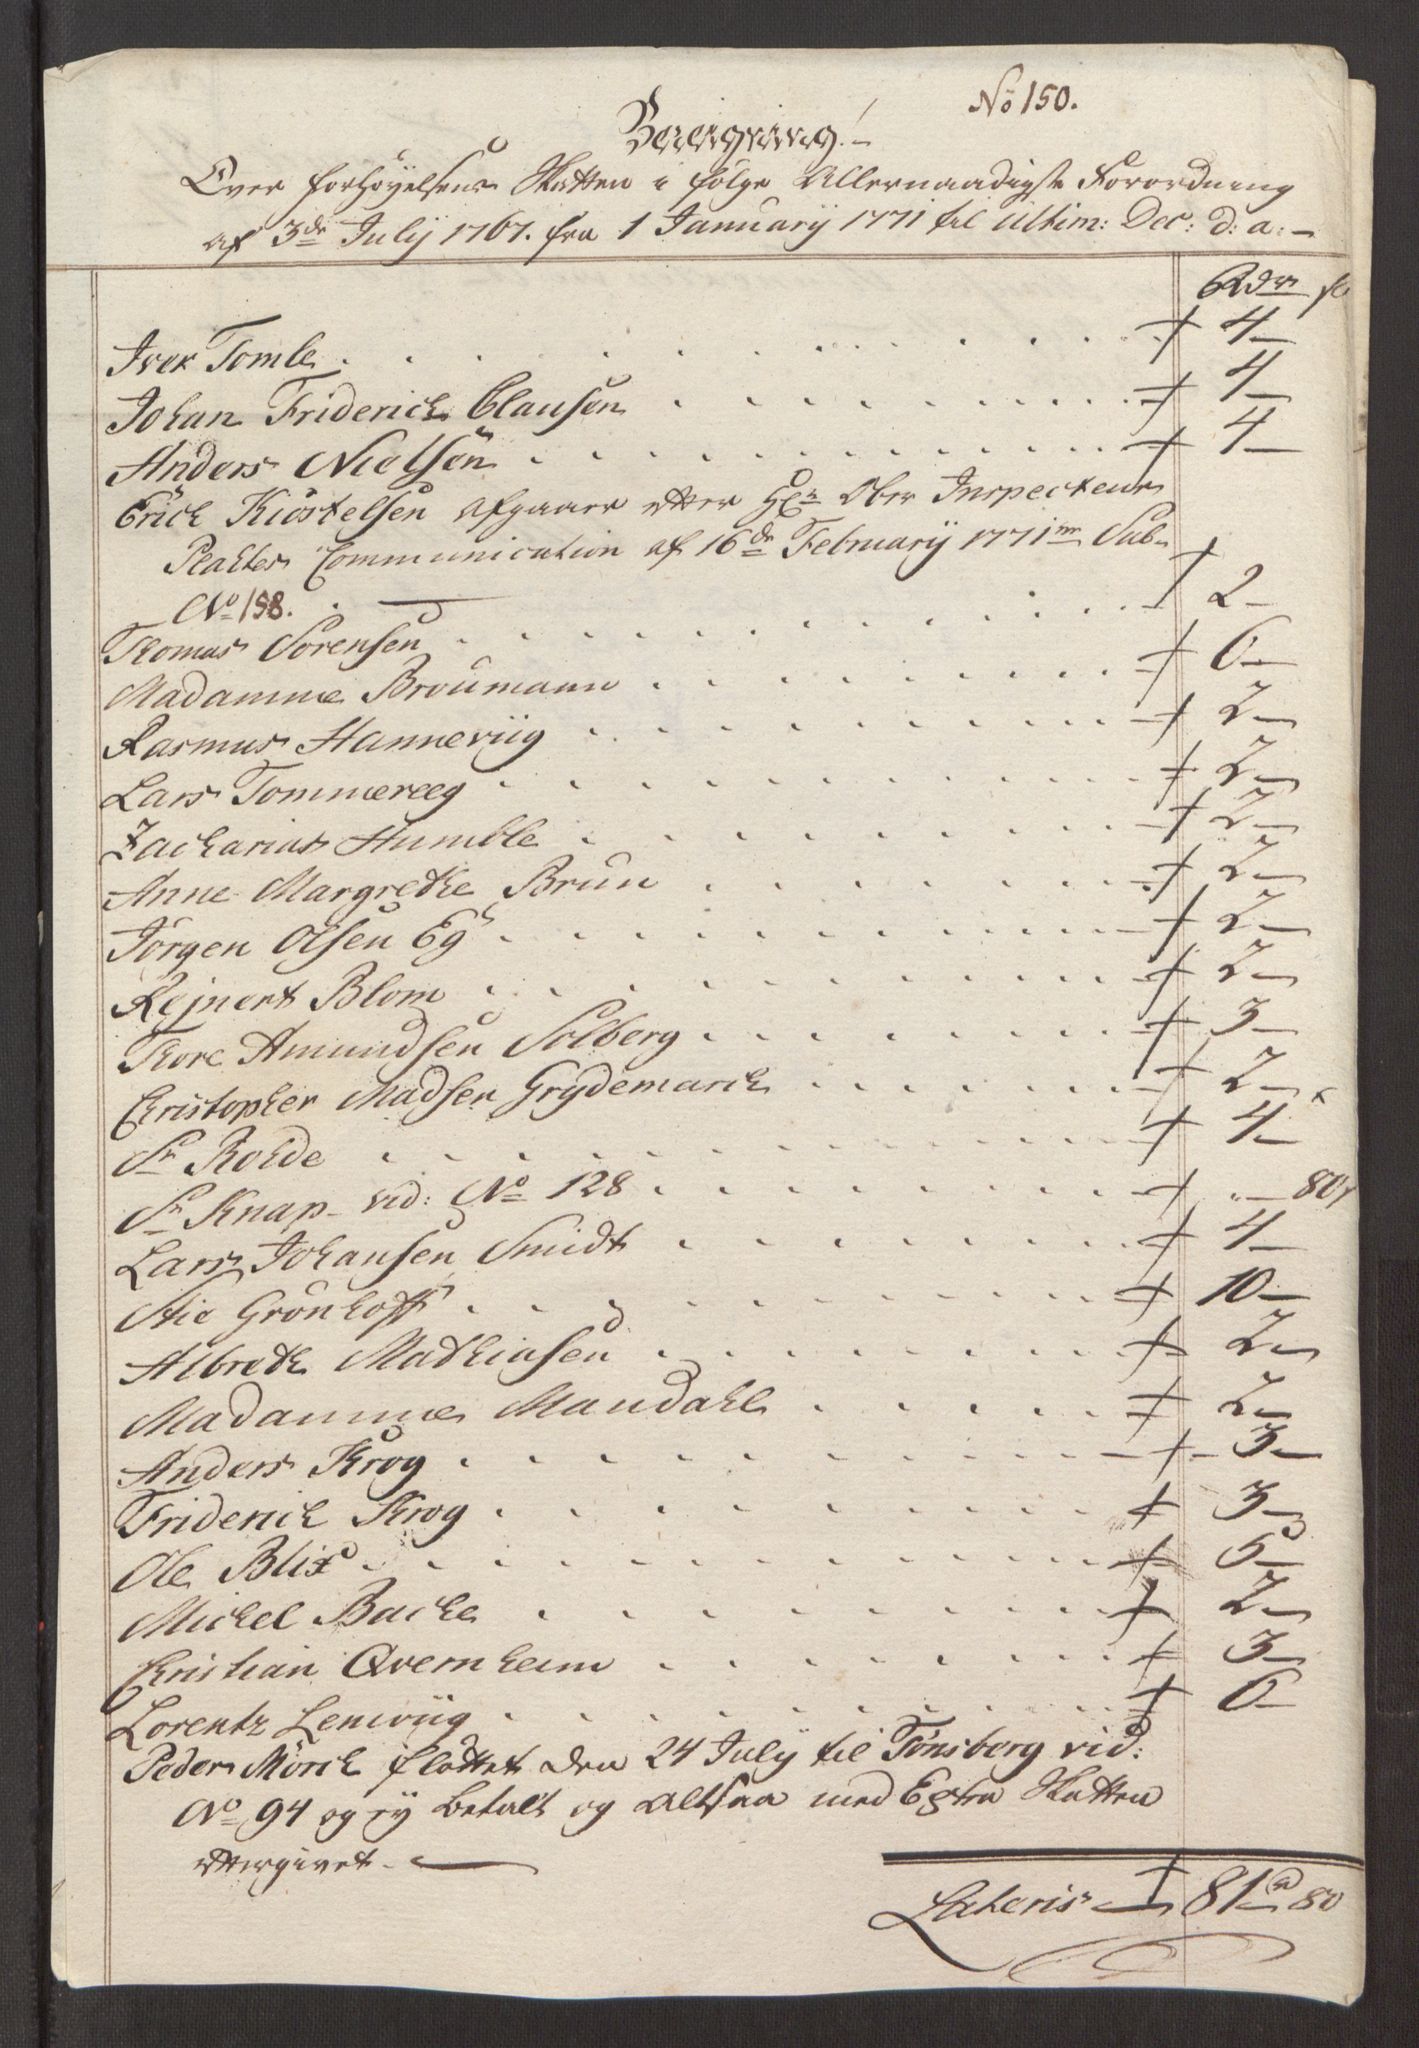 No 150.
Beregning!
Over Forhöyelsens Skatten i fölge Allernaadigste Forordning
af 3de Julÿ 1767. fra 1 Januarÿ 1771 til Ultim: Dec: d: a:
Rdr s
Iver Tomle + 4
Johan Friderich Clausen + 4
Anders Nielsen + 4
Erich Kiöstelsen afgaaer efter Hr Ober Inspecteur
Communication af 16de Februarÿ 1771 Sub
No 158.
Thomas Sörensen + 2
Madamme Broumann + 6
Rasmus Hanneviig + 2
Lars Tommereeg + 2
Zacharias Humble + 2
Anne Margrethe Brun + 2
Jörgen Olsen Eg + 2
Rejnert Blom + 2
Thore Amundsen Solberg + 3
Christopher Madsen Grydemarch + 2
Sr Rohde + 4
Sr Knap vid: No 128 + 80
Lars Johansen Smidt + 4
Stie Grönhoff + 10
Albreth Mathiasen + 2
Madamme Mandahl + 2
Anders Krog + 3
Friderich Krog + 3
Ole Blix + 5
Michel Backe + 2
Christian Qvernheim + 3
Lorentz Lemviig + 6
Peder Mörch flöttet den 24 Julÿ til Tönsberg vid:
No 94 og ey betalt og altsaa med Extra Skatten
eftergivet
Lateris + 81 80